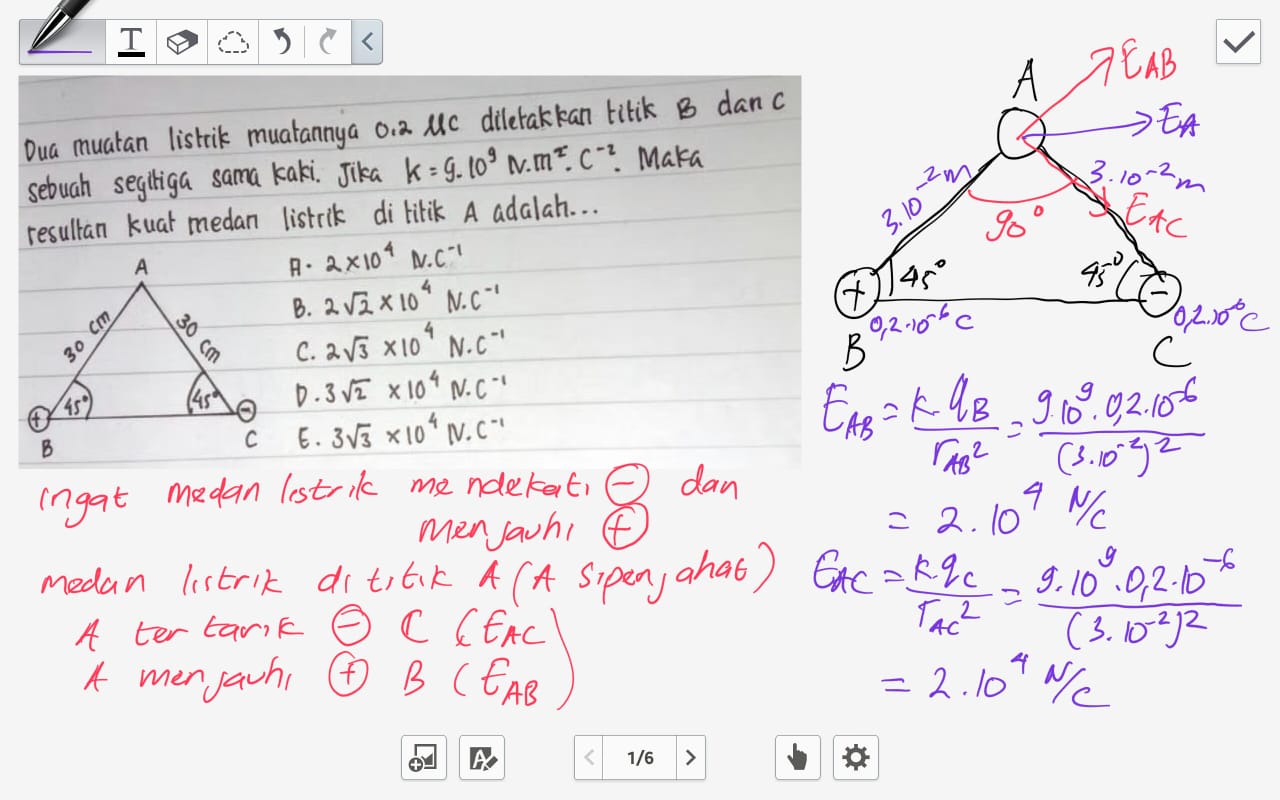 T
Dua muatan listrik muatannya 0.2 Mc diletakkan titik B dan C
sebuah segitiga sama kaki. Jika k = 9.10⁹ N.m². C⁻². Maka
resultan kuat medan listrik di titik A adalah...
A. 2×10⁴ N.C⁻¹
B. 2√2 ×10⁴ N.C⁻¹
C. 2√3 ×10⁴ N.C⁻¹
D. 3√2 ×10⁴ N.C⁻¹
E. 3√3 ×10⁴ N.C⁻¹
A
30 cm
30 cm
+ 45°
45° −
B
C
ingat medan listrik mendekati ⊖ dan
menjauhi ⊕
medan listrik di titik A (A sipenjahat)
A tertarik ⊖ C (E_AC)
A menjauhi ⊕ B (E_AB)
A
E_AB
E_A
3.10⁻²m
3.10⁻²m
90°
E_AC
+ 45°
45° −
0,2.10⁻⁶ C
0,2.10⁻⁶ C
B
C
E_AB = k.q_B/r_AB² = 9.10⁹.0,2.10⁻⁶/(3.10⁻²)²
= 2.10⁴ N/C
E_AC = k.q_C/r_AC² = 9.10⁹.0,2.10⁻⁶/(3.10⁻²)²
= 2.10⁴ N/C
A
1/6